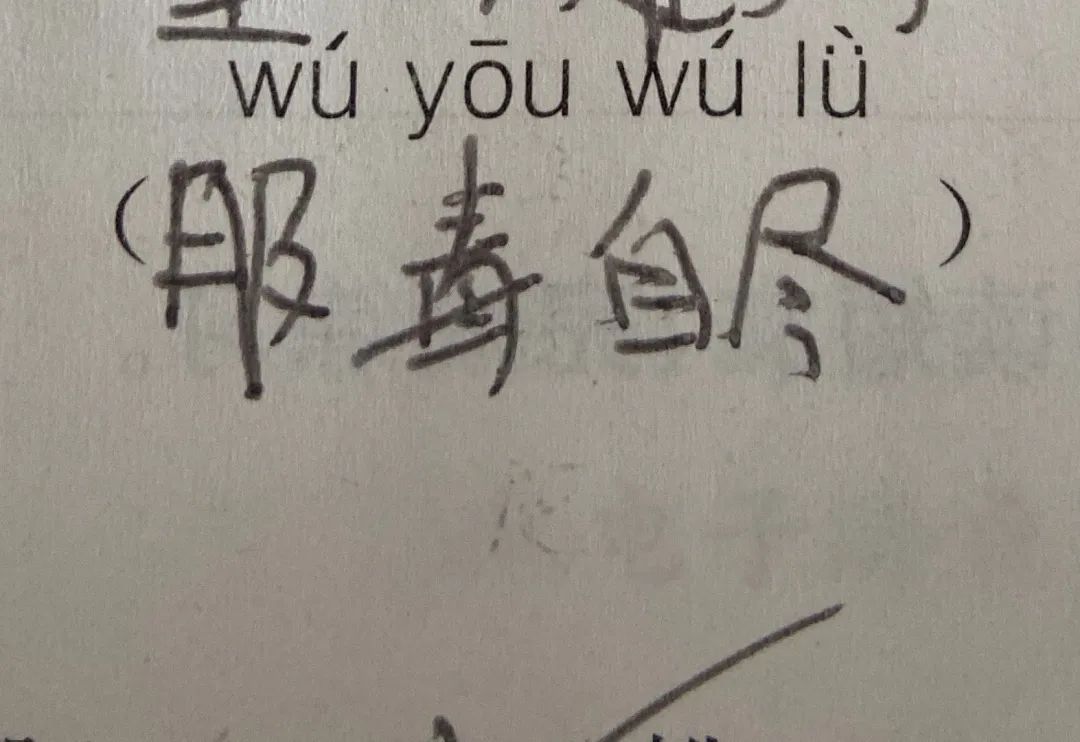 wú yōu wú lǜ
(服毒自尽)